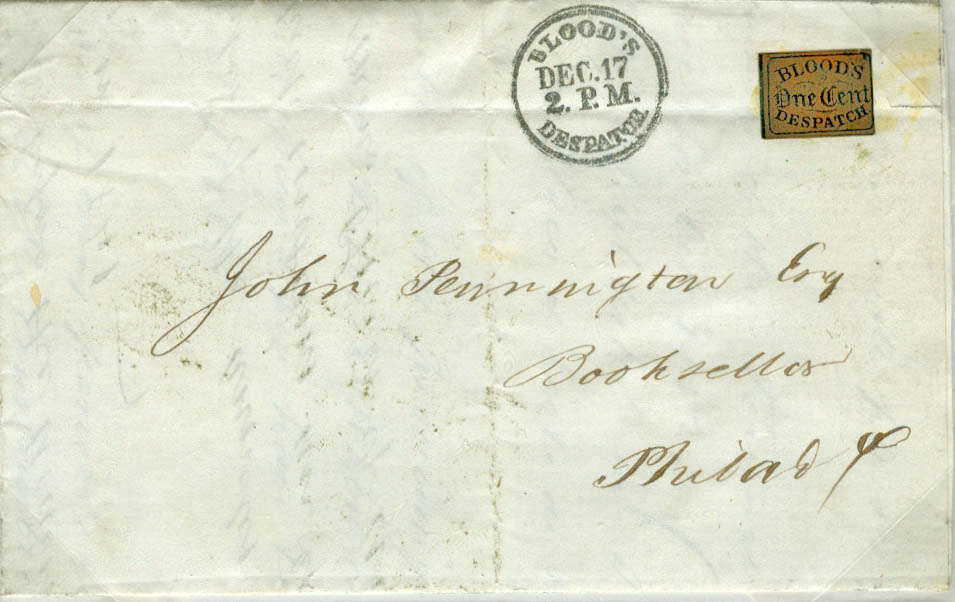 BLOOD'S
DEC. 17
2. P.M.
DESPATCH
BLOOD'S
One Cent
DESPATCH
John Pennington Esq
Bookseller
Philad